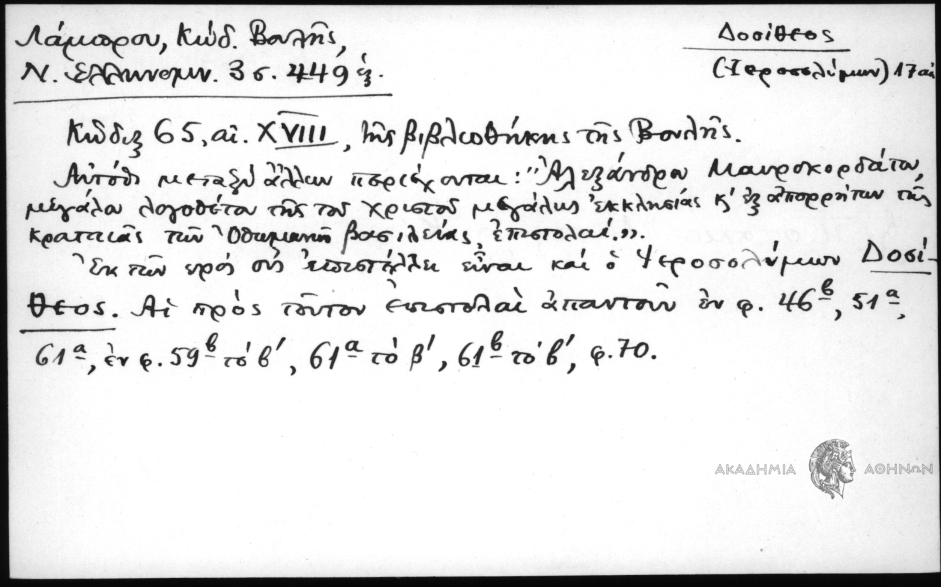 Λάμπρου, Κώδ. Βουλῆς,
Ν. Ἑλληνομν. 3 σ. 449 ἑξ.
Δοσίθεος
(Ἱεροσολύμων) 17 αἰ
Κώδιξ 65, αἰ. XVIII, τῆς βιβλιοθήκης τῆς Βουλῆς.
Αὐτόθι μεταξὺ ἄλλων περιέχονται: "Ἀλεξάνδρου Μαυροκορδάτου,
μεγάλου λογοθέτου τῆς τοῦ Χριστοῦ μεγάλης ἐκκλησίας κ' ἐξ ἀπορρήτων τῆς
κραταιᾶς τῶν Ὀθωμανῶν βασιλείας, ἐπιστολαί.".
Ἐκ τῶν πρὸς οὓς ἐπιστέλλει εἶναι καὶ ὁ Ἱεροσολύμων Δοσί-
θεος. Αἱ πρὸς τοῦτον ἐπιστολαὶ ἀπαντοῦν ἐν φ. 46β, 51α,
61α, ἐν φ. 59β τὸ β', 61α τὸ β', 61β τὸ β', φ. 70.
ΑΚΑΔΗΜΙΑ ΑΘΗΝΩΝ